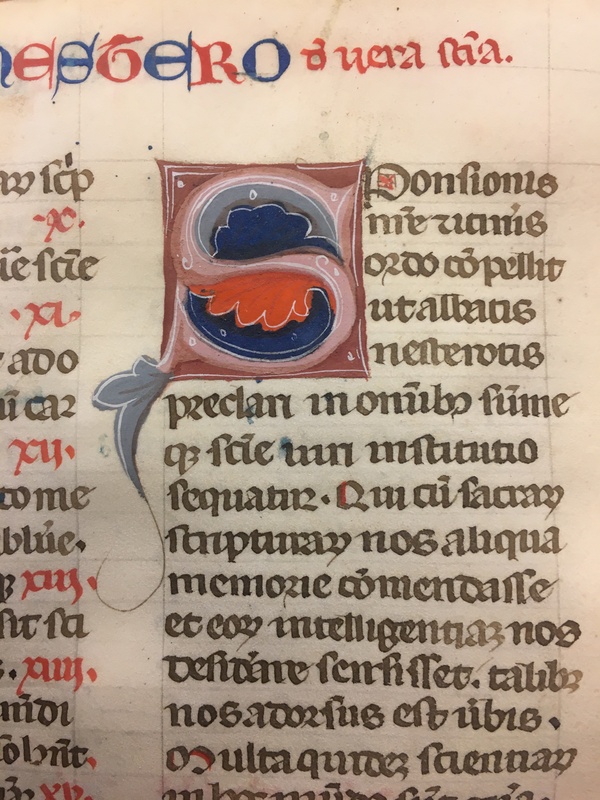 NESTERO d̄ uera sc̄ia.
aꝝ sc̄p
·x·
ue scīe
·xi·
ado
car
xij·
to me
blūe,
xiij·
sit sci
·xiiij·
mīdi
solūīt,
xv·
SPonsionis
m̄e ⁊ itineris
ordo cōpellit
ut abbatis
nesterotis
preclari in om̄ibꝫ sūme
qꝫ scīe uiri institutio
sequatur. Qui cū sacraꝝ
scripturaꝝ nos aliqua
memorie cōmendasse
et eoꝝ intelligentiaꝫ nos
desid̄are sensisset. talibꝫ
nos adorsus est ūbis.
Multa quidez scientiaꝝ
in hoc mūdo sūt